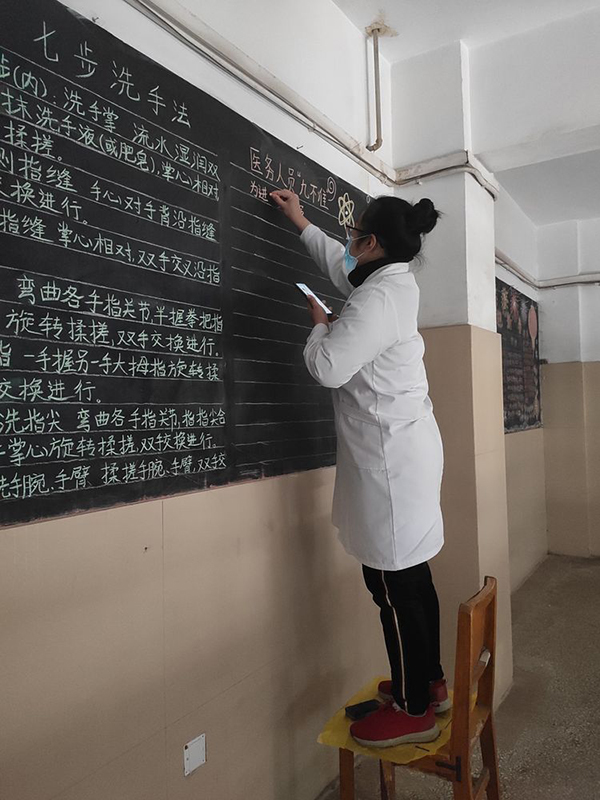 七步洗手法
步(内):洗手掌 流水湿润双
抹洗手液(或肥皂),掌心相对
揉搓。
则指缝 手心对手背沿指缝
交换进行。
指缝 掌心相对,双手交叉沿指
弯曲各手指关节,半握拳把指
旋转揉搓,双手交换进行。
指 一手握另一手大拇指旋转揉
交换进行。
洗指尖 弯曲各手指关节,指指尖合
掌心旋转揉搓,双手交换进行。
洗手腕、手臂 揉搓手腕、手臂,双手交
医务人员"九不准"
为进